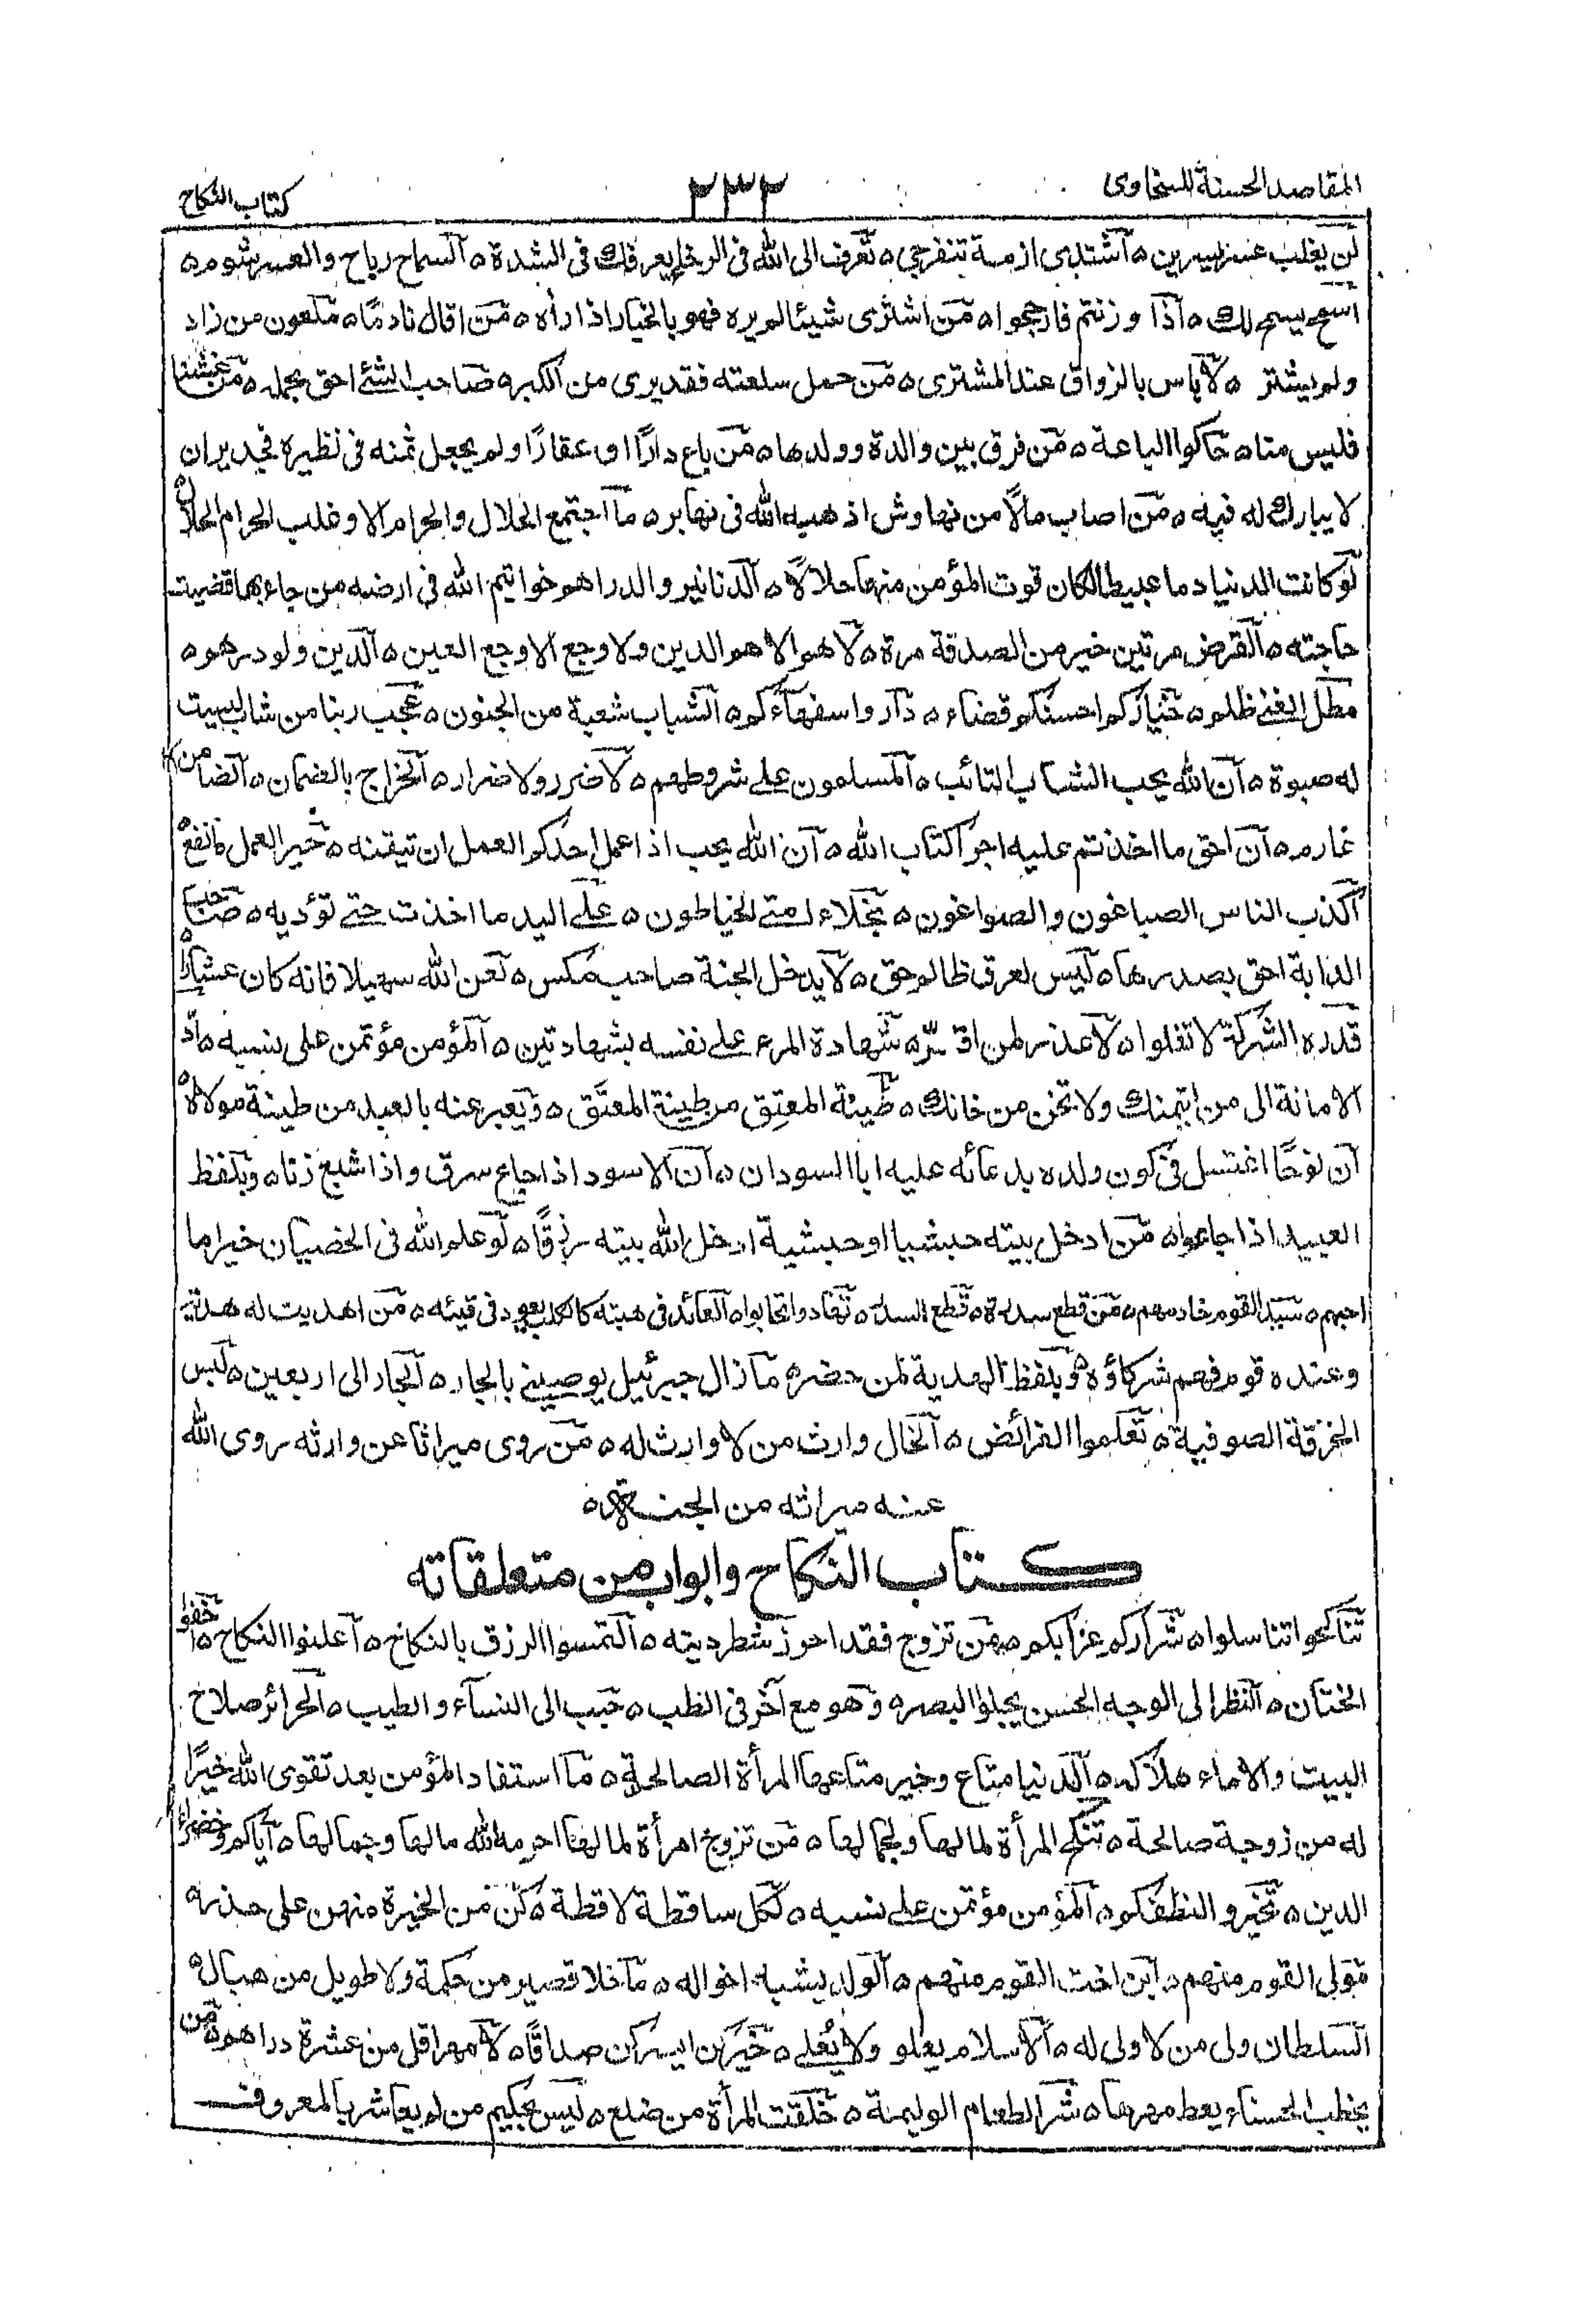 المقاصد الحسنة للسخاوى ٢٣٢ كتاب النكاح
لن يغلب عسر يسرين ه اشتدى ازمة تنفرجى ه تعرف الى الله فى الرخاء يعرفك فى الشدة ه السماح رباح والعسر شوم ه
اسمح يسمح لك ه اذا وزنتم فارجحوا ه من اشترى شيئا لم يره فهو بالخيار اذا رأه ه من اقال نادمًا ه ملعون من زاد
ولم يشتر ه لا باس بالزواق عند المشترى ه من حمل سلعته فقد برى من الكبر ه صاحب الشئ احق بحمله ه من غشنا
فليس منا ه حاكوا الباعة ه من فرق بين والدة وولدها ه من باع دارًا او عقارًا ولم يجعل ثمنه فى نظيره فجدير ان
لا يبارك له فيه ه من اصاب مالًا من نهاوش اذهبه الله فى نهابر ه ما اجتمع الحلال والحرام الا وغلب الحرام الحلال ه
لو كانت الدنيا دما عبيطا لكان قوت المؤمن منها حلالًا ه الدنانير والدراهم خواتيم الله فى ارضه من جاء بها قضيت
حاجته ه القرض مرتين خير من الصدقة مرة ه لا هم الا هم الدين ولا وجع الا وجع العين ه الدين ولو درهم ه
مطل الغنى ظلم ه خياركم احسنكم قضاء ه دارواسفهآءكم ه الشباب شعبة من الجنون ه عجب ربنا من شاب ليست
له صبوة ه ان الله يحب الشاب التائب ه المسلمون على شروطهم ه لا ضرر ولا ضرار ه الخراج بالضمان ه الضامن
غارم ه ان احق ما اخذتم عليه اجرا كتاب الله ه ان الله يحب اذا عمل احدكم العمل ان يتقنه ه خير العمل ما نفع ه
اكذب الناس الصباغون والصواغون ه بخلاء امتى الخياطون ه على اليد ما اخذت حتى تؤديه ه صاحب
الدابة احق بصدرها ه ليس لعرق ظالم حق ه لا يدخل الجنة صاحب مكس ه لعن الله سهيلا فانه كان عشارًا ه
قدره الشركة لا تغلوا ه لا عذر لمن اقر ه شهادة المرء على نفسه بشهادتين ه المؤمن مؤتمن على نسبه ه اد
الامانة الى من ايتمنك ولا تخن من خانك ه طينة المعتِق من طينة المعتَق ه ويعبر عنه بالعبد من طينة مولاه ه
ان نوحًا اغتسل فى كون ولده بدعائه عليه ابا السودان ه ان الاسود اذا جاع سرق واذا شبع زنا ه وبلفظ
العبيد اذا جاعوا ه من ادخل بيته حبشيا او حبشية ادخل الله بيته رزقًا ه لو علم الله فى الخصيان خيرا ما
احبهم ه سيد القوم خادمهم ه من قطع سدرة ه قطع السدر ه تهادوا تحابوا ه العائد فى هبته كالكلب يعود فى قيئه ه من اهديت له هدية
وعنده قوم فهم شركاؤه ه وبلفظ الهدية لمن حضر ه ما زال جبرئيل يوصينى بالجار ه الجار الى اربعين ه لبس
الخرقة الصوفية ه تعلموا الفرائض ه الخال وارث من لا وارث له ه من زوى ميراثا عن وارثه زوى الله
عنه ميراثه من الجنة ه
كتاب النكاح وابواب من متعلقاته
تناكحوا تناسلوا ه شراركم عزابكم ه من تزوج فقد احرز شطر دينه ه التمسوا الرزق بالنكاح ه اعلنوا النكاح ه اخفوا
الختان ه النظر الى الوجه الحسن يجلو البصر ه وهو مع آخر فى الطب ه حبب الى النساء والطيب ه الحرائر صلاح
البيت والاماء هلاكه ه الدنيا متاع وخير متاعها المرأة الصالحة ه ما استفاد المؤمن بعد تقوى الله خيرًا
له من زوجة صالحة ه تنكح المرأة لمالها ولجمالها ه من تزوج امرأة لمالها احرمه الله مالها وجمالها ه اياكم وخضراء
الدمن ه تخيروا لنطفكم ه المؤمن مؤتمن على نسبه ه لكل ساقطة لاقطة ه كن من الخيرة منهن على حذر ه
مولى القوم منهم ه ابن اخت القوم منهم ه الولد يشبه اخواله ه ما خلا قصير من حكمة ولا طويل من هبالة
السلطان ولى من لا ولى له ه الاسلام يعلو ولا يُعلى ه خيركن ايسركن صداقًا ه لا مهر اقل من عشرة دراهم ه من
يخطب الحسناء يعط مهرها ه شر الطعام الوليمة ه خلقت المرأة من ضلع ه ليس بحكيم من لم يعاشر بالمعروف